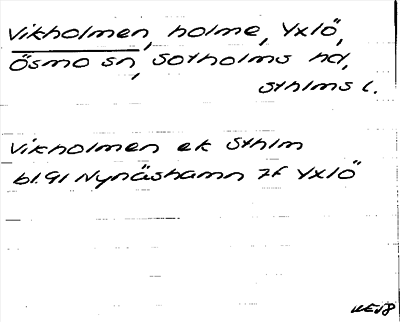 Vikholmen, holme, Yxlö,
Ösmo sn, Sotholms hd,
Sthlms l.
Vikholmen ek Sthlm
bl.91 Nynäshamn 7f Yxlö